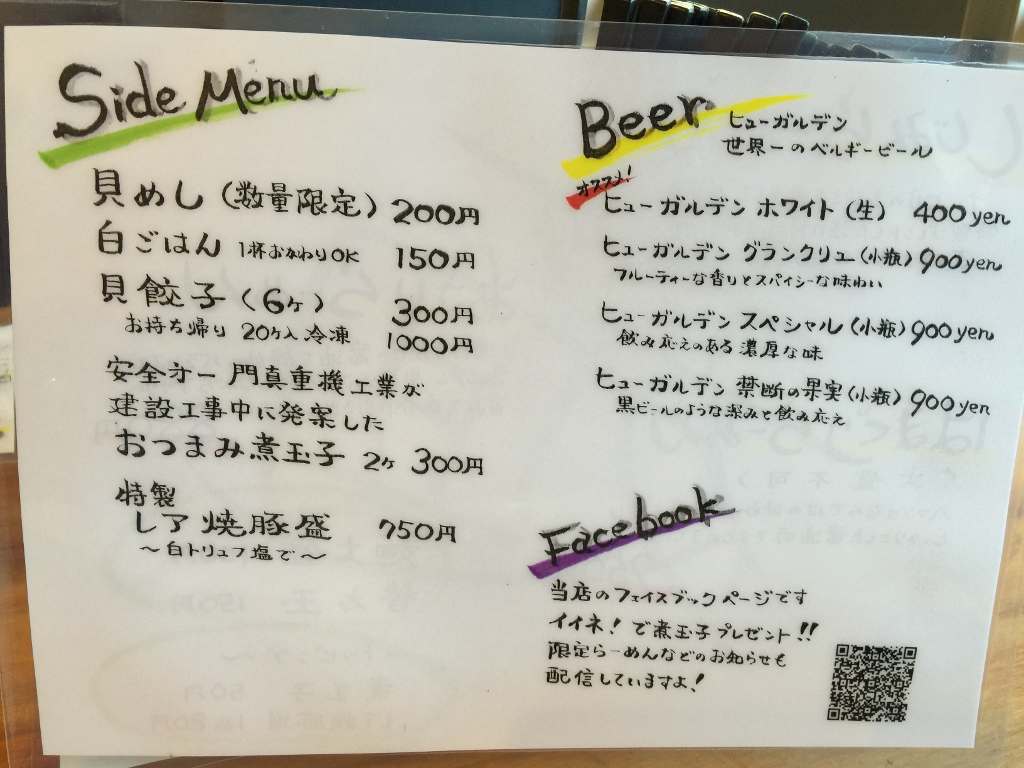 Side Menu
貝めし (数量限定) 200円
白ごはん 1杯おかわりOK 150円
貝餃子 (6ヶ) 300円
お持ち帰り 20ヶ入 冷凍 1000円
安全才一 門真重機工業が
建設工事中に発案した
おつまみ煮玉子 2ヶ 300円
特製
レア焼豚盛 750円
～白トリュフ塩で～
Beer ヒューガルデン
世界一のベルギービール
オススメ!
ヒューガルデン ホワイト (生) 400yen
ヒューガルデン グランクリュ (小瓶) 900yen
フルーティーな香りとスパイシーな味わい
ヒューガルデン スペシャル (小瓶) 900yen
飲み応えのある濃厚な味
ヒューガルデン 禁断の果実 (小瓶) 900yen
黒ビールのような深みと飲み応え
Facebook
当店のフェイスブックページです
イイネ!で煮玉子プレゼント!!
限定らーめんなどのお知らせも
配信していますよ!